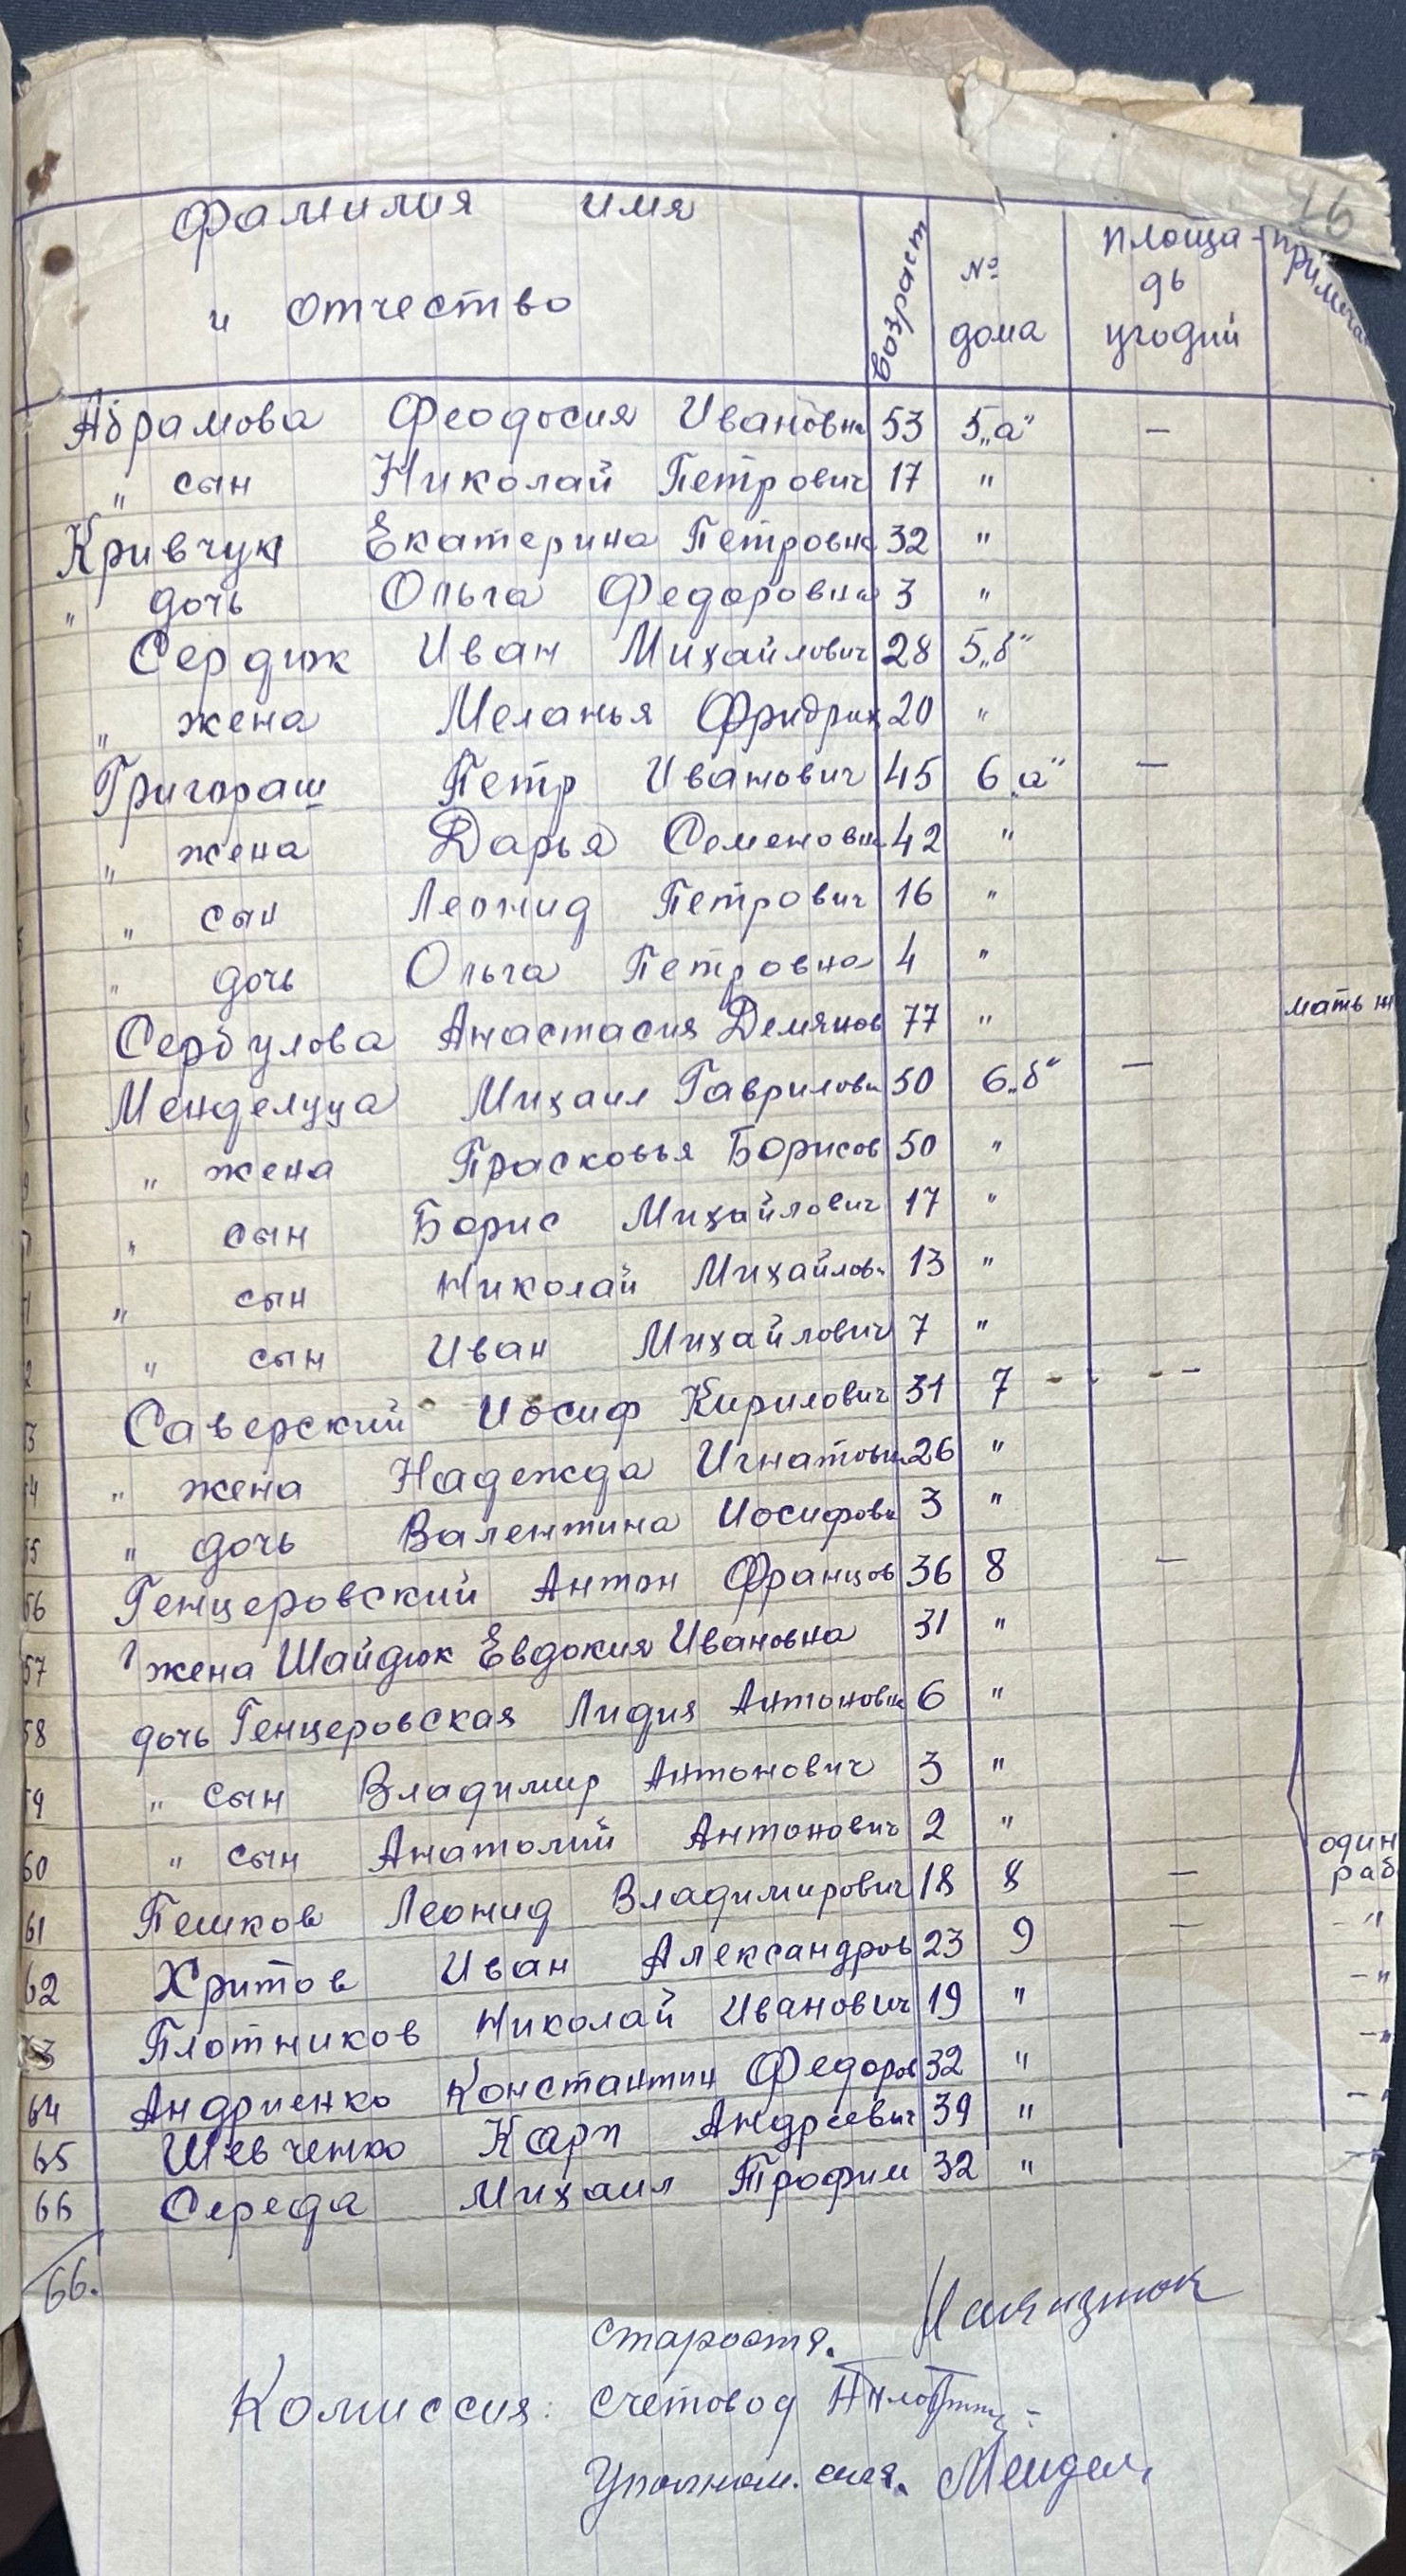 46
Фамилия имя
и отчество
возраст
№ дома
площа-
дь
угодий
примеча
Абрамова Феодосия Ивановна 53 5„а" —
" сын Николай Петрович 17 "
Кривчук Екатерина Петровна 32 "
" дочь Ольга Федоровна 3 "
Сердюк Иван Михайлович 28 5„б"
" жена Меланья Фридрих 20 "
Григораш Петр Иванович 45 6„а" —
" жена Дарья Семеновн 42 "
" сын Леонид Петрович 16 "
" дочь Ольга Петровна 4 "
Сербулова Анастасия Демянов 77 " мать ж
Менделуца Михаил Гаврилови 50 6„б" —
" жена Прасковья Борисов 50 "
" сын Борис Михайлович 17 "
" сын Николай Михайлов 13 "
" сын Иван Михайлович 7 "
Саверский Иосиф Кирилович 31 7 —
" жена Надежда Игнатовн 26 "
55 " дочь Валентина Иосифовн 3 "
56 Генцеровский Антон Францов 36 8 —
57 жена Шайдюк Евдокия Ивановна 31 "
58 дочь Генцеровская Лидия Антоновн 6 "
59 " сын Владимир Антонович 3 "
60 " сын Анатолий Антонович 2 "
61 Пешков Леонид Владимирович 18 8 — один раб
62 Хритов Иван Александров 23 9 — - "
63 Плотников Николай Иванович 19 " - "
64 Андриенко Константин Федоров 32 " - "
65 Шевченко Карп Андреевич 39 " - "
66 Середа Михаил Трофим 32 " - "
66.
староста.
Комиссия: счетовод
Уполном. Мендел